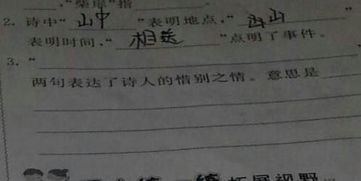 "柴扉"指
2. 诗中"山中"表明地点,"
表明时间,"相送"点明了事件。
3. "
两句表达了诗人的惜别之情。意思是
拓展视野